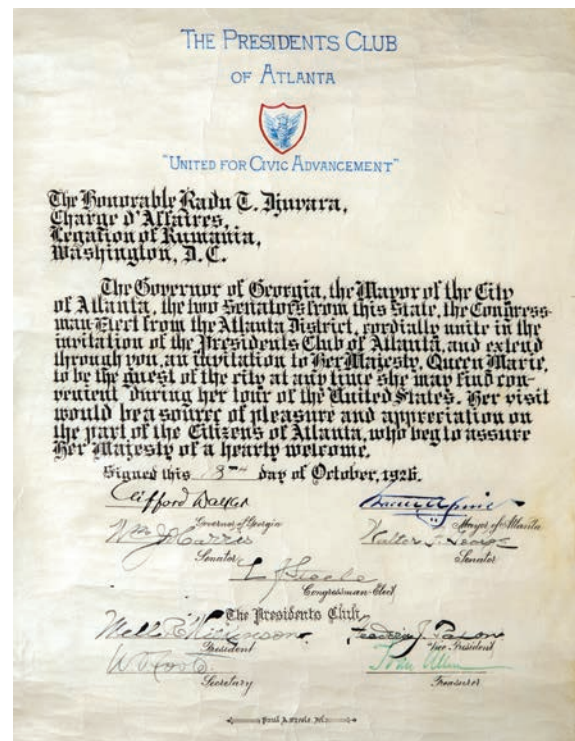 THE PRESIDENTS CLUB
OF ATLANTA
"UNITED FOR CIVIC ADVANCEMENT"
The Honorable Radu T. Djuvara,
Charge d'Affaires,
Legation of Rumania,
Washington, D.C.
The Governor of Georgia, the Mayor of the City
of Atlanta, the two Senators from this State, the Congress-
man-Elect from the Atlanta District, cordially unite in the
invitation of the Presidents Club of Atlanta, and extend
through you, an invitation to Her Majesty, Queen Marie,
to be the guest of the city at any time she may find con-
venient during her tour of the United States. Her visit
would be a source of pleasure and appreciation on
the part of the Citizens of Atlanta, who beg to assure
Her Majesty of a hearty welcome.
Signed this day of October, 1926.
Clifford Walker
Governor of Georgia Mayor of Atlanta
Wm J Harris Walter F. George
Senator Senator
L J Steele
Congressman-Elect
The Presidents Club
Mell R Wilkinson Frederic J. Paxon
President Vice President
Ivan Allen
Secretary Treasurer